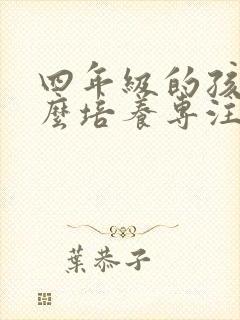 四年級的孩
麼培養專注
葉恭子